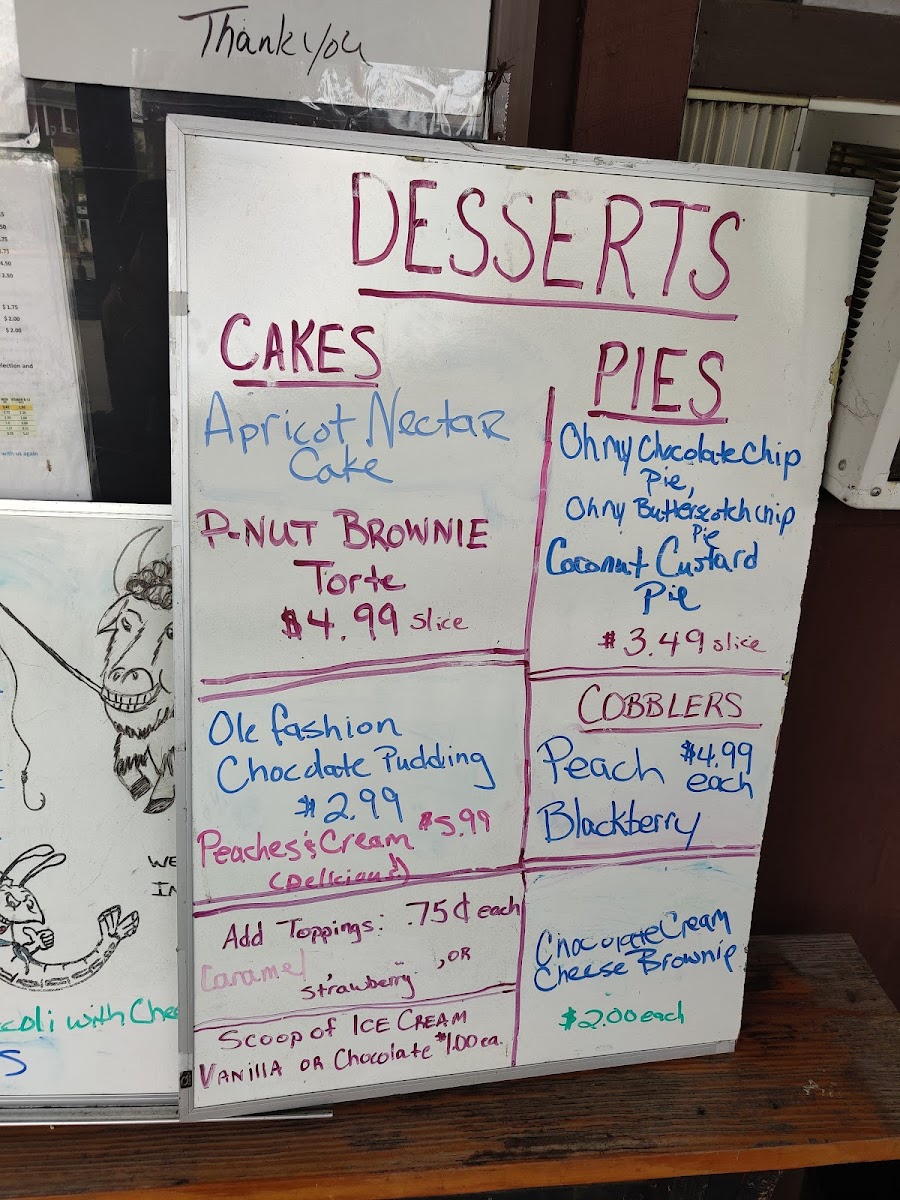 Thank you
DESSERTS
CAKES
Apricot Nectar
Cake
P-NUT BROWNIE
Torte
$4.99 slice
PIES
Oh my Chocolate Chip
Pie,
Oh my Butterscotch chip
Pie
Coconut Custard
Pie
$3.49 slice
Ole fashion
Chocolate Pudding
$2.99
Peaches & Cream $5.99
COBBLERS
Peach $4.99
each
Blackberry
Add Toppings: .75¢ each
Caramel, Strawberry, OR
Scoop of ICE CREAM
VANIllA OR Chocolate $1.00 ea.
Chocolate Cream
Cheese Brownie
$2.00 each
$1.75
$2.00
$2.00
election and
with us again
WE
IN
coli with Chee
S